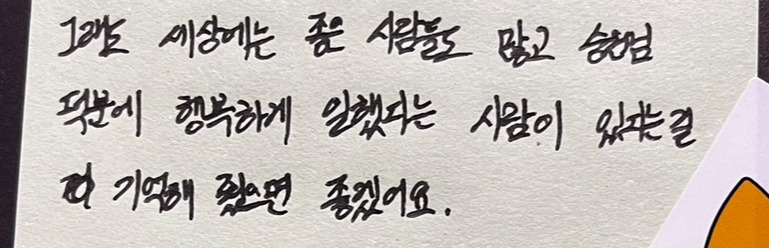 그래도 세상에는 좋은 사람들도 많고 승현님
덕분에 행복하게 일했다는 사람이 있다는걸
더 기억해 줬으면 좋겠어요.